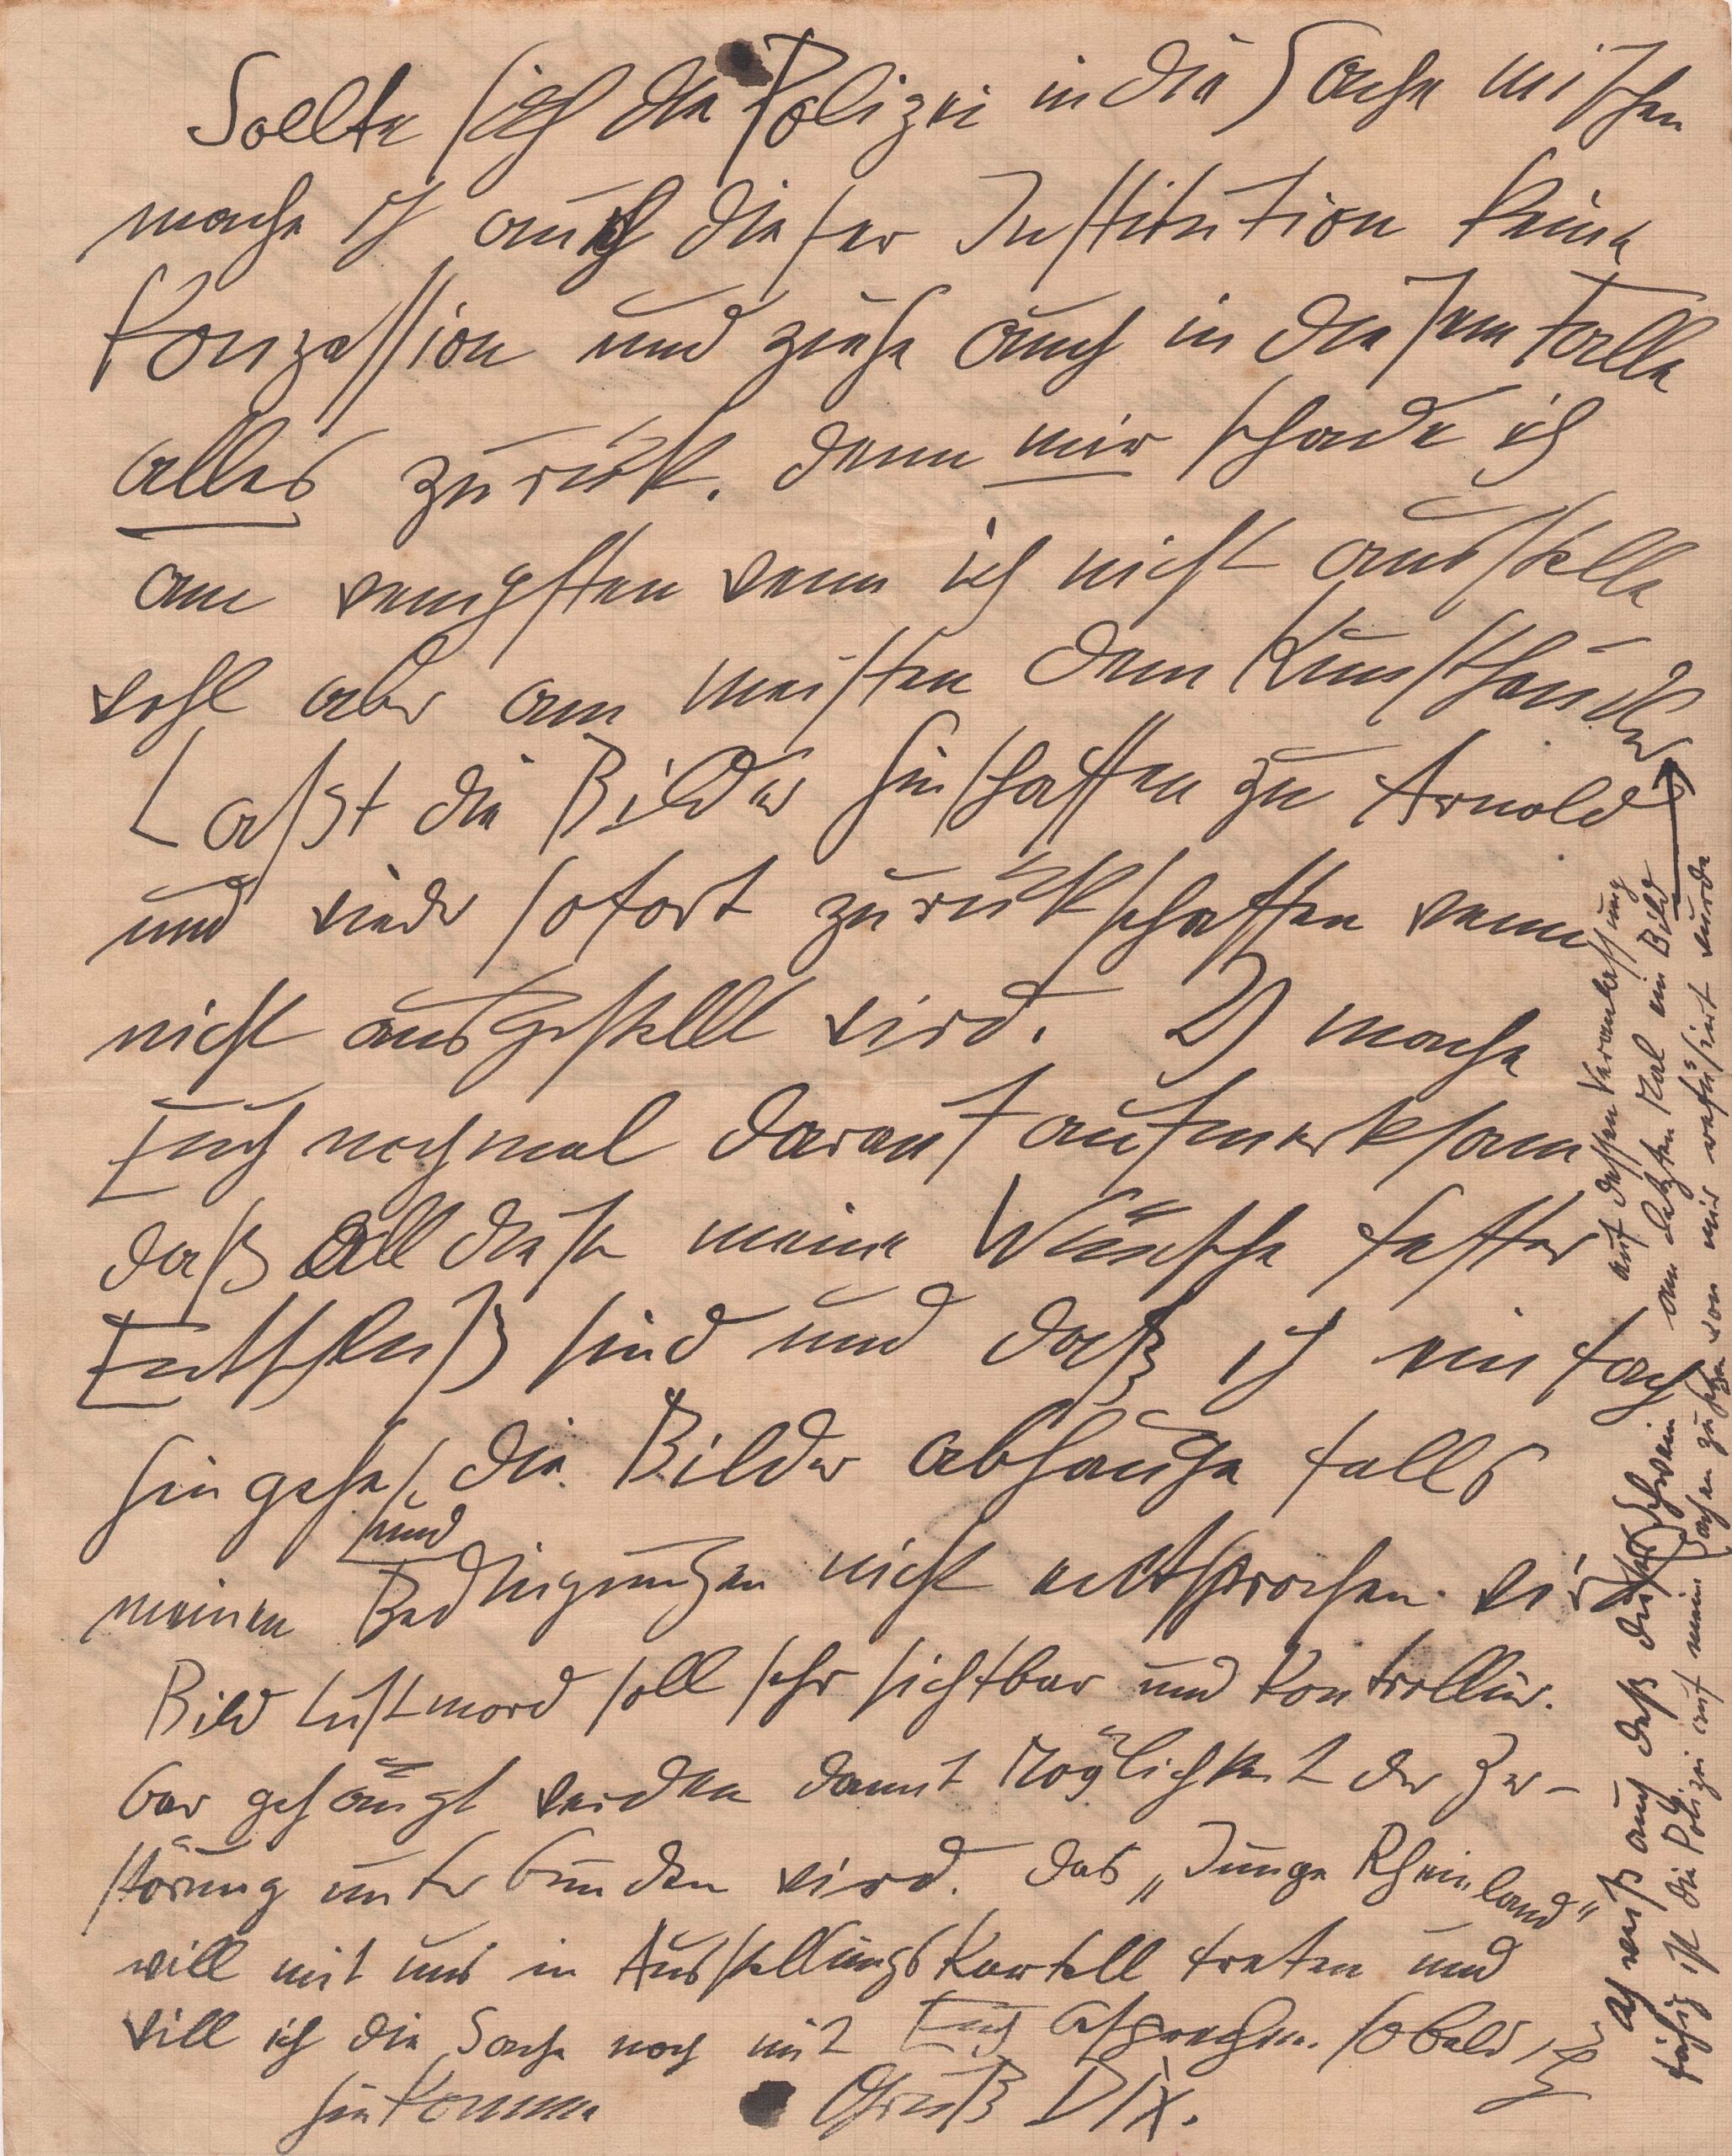 Sollte sich die Polizei in die Sache mischen
mache ich auch dieser Institution keine
Konzession und ziehe auch in diesem Falle
alles zurück. denn mir schade ich
am wenigsten wenn ich nicht ausstelle
wohl aber am meisten dem Kunsthändler
Laßt die Bilder hinschaffen zu Arnold
und wieder sofort zurückschaffen wenn
nicht ausgestellt wird. Ich mache
Euch nochmal darauf aufmerksam
daß all diese meine Wünsche fester
Entschluß sind und daß ich einfach
hingehe, die Bilder abhänge falls
und
meinen Bedingungen nicht entsprochen wird
Bild Lustmord soll sehr sichtbar und kontrollier-
bar gehängt werden damit Möglichkeit der Zer-
störung unterbunden wird. Das „Junge Rheinland“
will mit uns in Ausstellungskartell treten und
will ich die Sache noch mit Euch besprechen. sobald ich
hinkomme Gruß Dix.
auf dessen Veranlassung
am letzten Mal ein Bild
von mir refüsirt wurde
Ich weiß auch daß dieses Schwein
fähig ist die Polizei auf meine Sachen zu hetzen